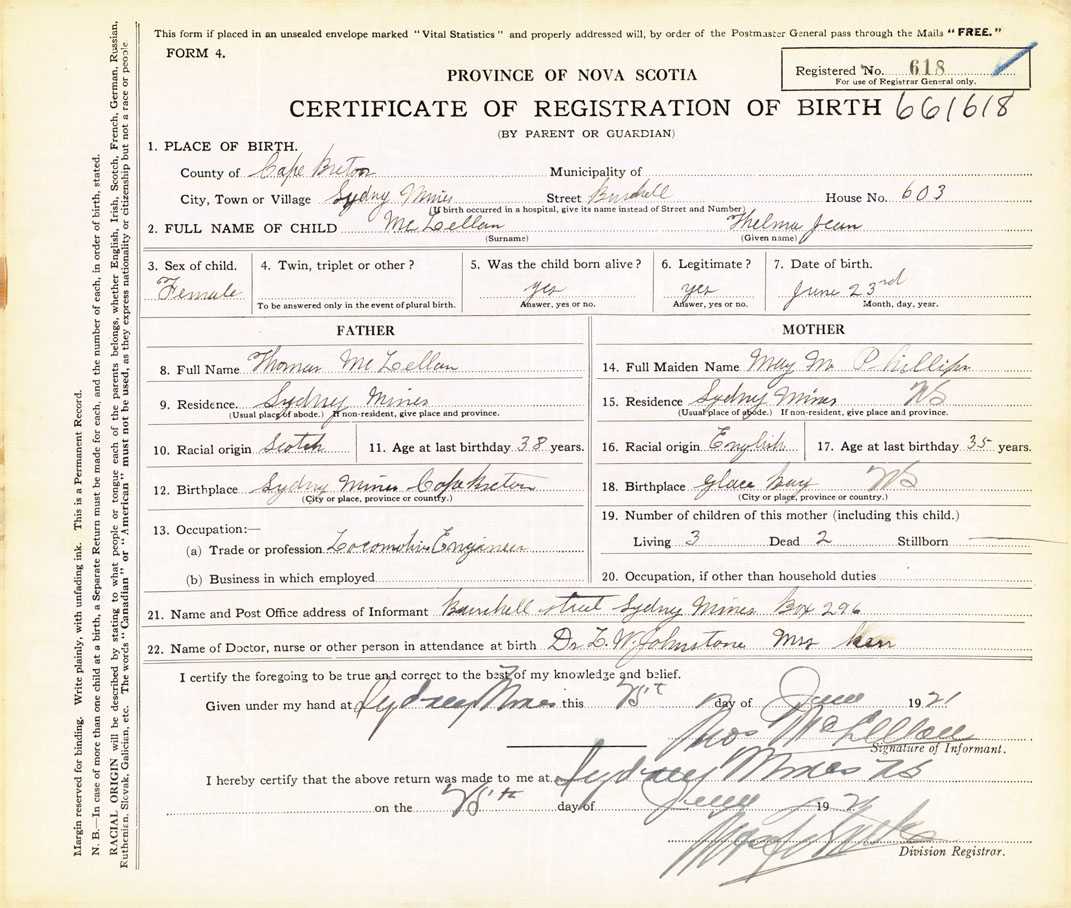 This form if placed in an unsealed envelope marked "Vital Statistics" and properly addressed will, by order of the Postmaster General pass through the Mails "FREE."
FORM 4.
Registered No. 618
For use of Registrar General only.
PROVINCE OF NOVA SCOTIA
CERTIFICATE OF REGISTRATION OF BIRTH 661618
(BY PARENT OR GUARDIAN)
1. PLACE OF BIRTH.
County of Cape Breton Municipality of
City, Town or Village Sydny Mines Street House No. 603
(If birth occurred in a hospital, give its name instead of Street and Number)
2. FULL NAME OF CHILD McLellan Thelma Jean
(Surname) (Given name)
3. Sex of child. 4. Twin, triplet or other? 5. Was the child born alive? 6. Legitimate? 7. Date of birth.
Female yes yes June 23rd
To be answered only in the event of plural birth. Answer, yes or no. Answer, yes or no. Month, day, year.
FATHER
8. Full Name Thomas McLellan
9. Residence. Sydney Mines
(Usual place of abode.) If non-resident, give place and province.
10. Racial origin Scotch 11. Age at last birthday 38 years.
12. Birthplace Sydney Mines Cape Breton
(City or place, province or country.)
13. Occupation:—
(a) Trade or profession Locomotive Engineer
(b) Business in which employed
MOTHER
14. Full Maiden Name May M Phillips
15. Residence Sydney Mines NS
(Usual place of abode.) If non-resident, give place and province.
16. Racial origin English 17. Age at last birthday 35 years.
18. Birthplace Glace Bay NS
(City or place, province or country.)
19. Number of children of this mother (including this child.)
Living 3 Dead 2 Stillborn —
20. Occupation, if other than household duties
21. Name and Post Office address of Informant street Sydny Mines Box 296
22. Name of Doctor, nurse or other person in attendance at birth Dr. L. W. Johnstone Mrs Kerr
I certify the foregoing to be true and correct to the best of my knowledge and belief.
Given under my hand at Sydney Mines this day of June 1921
Thos McLellan
Signature of Informant.
I hereby certify that the above return was made to me at Sydney Mines NS
on the day of June 1921
Division Registrar.
Margin reserved for binding. Write plainly, with unfading ink. This is a Permanent Record.
N. B.—In case of more than one child at a birth, a Separate Return must be made for each, and the number of each, in order of birth, stated.
RACIAL ORIGIN will be described by stating to what people or tongue each of the parents belongs, whether English, Irish, Scotch, French, German, Russian,
Ruthenian, Slovak, Galician, etc. The words "Canadian" or "American" must not be used, as they express nationality or citizenship but not a race or people